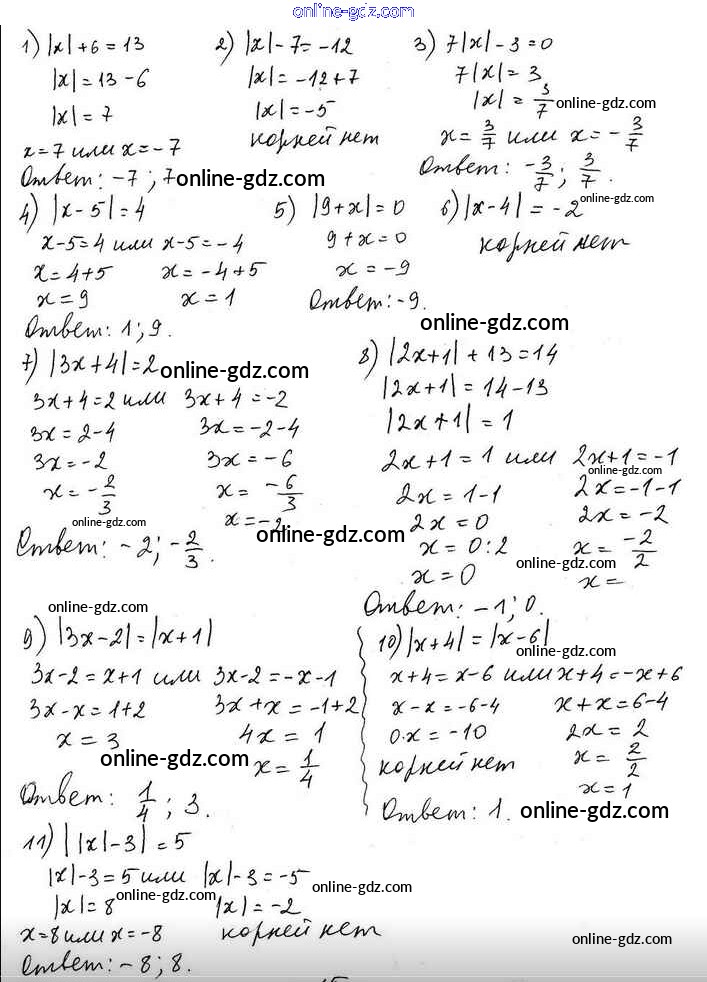 online-gdz.com
1) |x|+6=13
|x|=13-6
|x|=7
x=7 или x=-7
Ответ: -7; 7
online-gdz.com
2) |x|-7=-12
|x|=-12+7
|x|=-5
корней нет
3) 7|x|-3=0
7|x|=3
|x|=3/7
online-gdz.com
x=3/7 или x=-3/7
Ответ: -3/7; 3/7.
online-gdz.com
4) |x-5|=4
x-5=4 или x-5=-4
x=4+5 x=-4+5
x=9 x=1
Ответ: 1; 9.
5) |9+x|=0
9+x=0
x=-9
Ответ: -9.
6) |x-4|=-2
корней нет
online-gdz.com
7) |3x+4|=2
online-gdz.com
3x+4=2 или 3x+4=-2
3x=2-4 3x=-2-4
3x=-2 3x=-6
x=-2/3 x=-6/3
x=-2
online-gdz.com
Ответ: -2; -2/3.
online-gdz.com
8) |2x+1|+13=14
|2x+1|=14-13
|2x+1|=1
2x+1=1 или 2x+1=-1
online-gdz.com
2x=1-1 2x=-1-1
2x=0 2x=-2
x=0:2 x=-2/2
online-gdz.com
x=0 x=
Ответ: -1; 0.
online-gdz.com
9) |3x-2|=|x+1|
3x-2=x+1 или 3x-2=-x-1
3x-x=1+2 3x+x=-1+2
x=3 4x=1
x=1/4
online-gdz.com
Ответ: 1/4; 3.
10) |x+4|=|x-6|
online-gdz.com
x+4=x-6 или x+4=-x+6
x-x=-6-4 x+x=6-4
0·x=-10 2x=2
корней нет x=2/2
x=1
online-gdz.com
Ответ: 1.
online-gdz.com
11) ||x|-3|=5
|x|-3=5 или |x|-3=-5
online-gdz.com
online-gdz.com
|x|=8 |x|=-2
x=8 или x=-8 корней нет
online-gdz.com
Ответ: -8; 8.